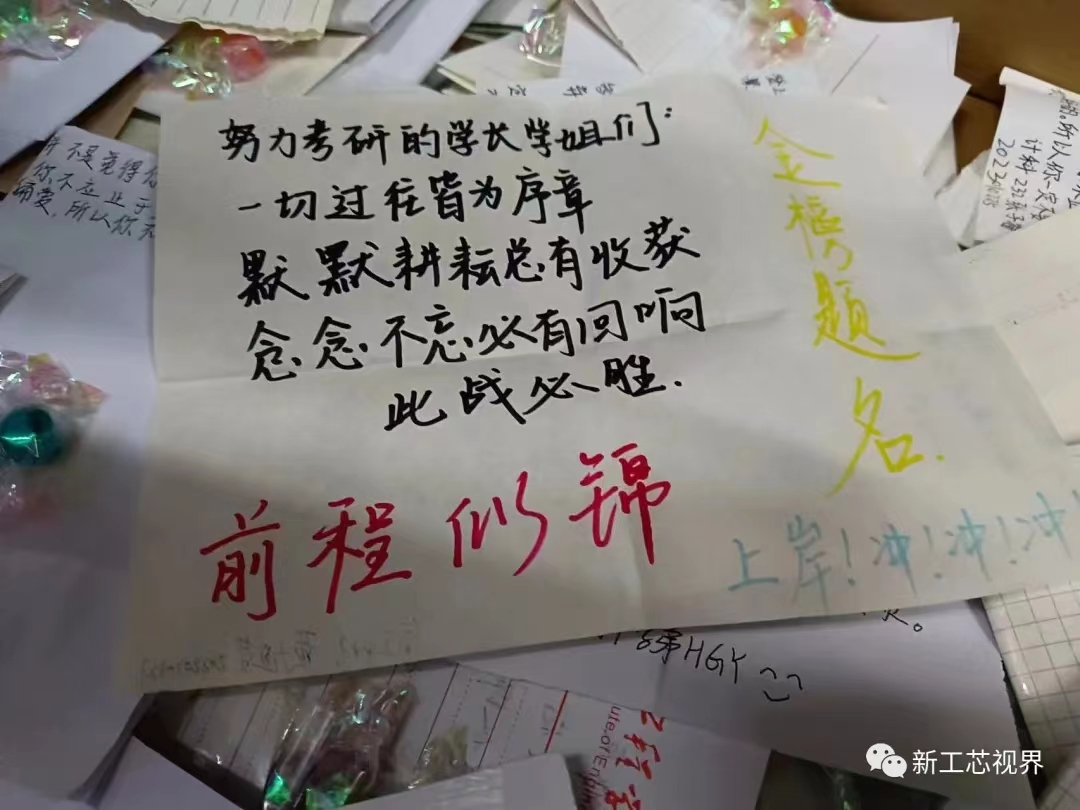 努力考研的学长学姐们:
一切过往皆为序章
默默耕耘总有收获
念念不忘必有回响
此战必胜.
金榜题名.
前程似锦
上岸!冲!冲!冲!
你不
所以你
所以你一定
计科232
HGY
新工芯视界